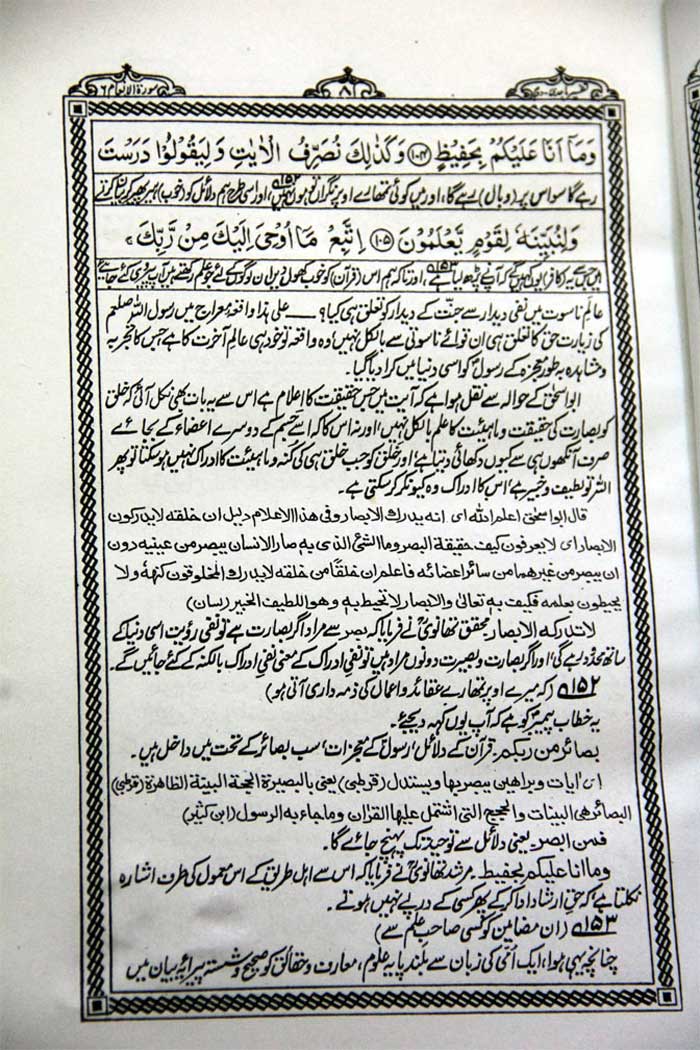 تفسیر ماجدی
۸
سورة الانعام ۶
وَمَآ اَنَا عَلَيْكُمْ بِحَفِيْظٍ ﴿۱۰۴﴾ وَكَذٰلِكَ نُصَرِّفُ الْاٰيٰتِ وَلِيَقُوْلُوْا دَرَسْتَ
رہے گا سو اس پر (وبال) رہے گا، اور میں کوئی تمھارے اوپر نگراں تو ہوں نہیں ۱۵۲ اور اسی طرح ہم دلائل کو (خوب) پھیر پھیر کر بیان کرتے
وَلِنُبَيِّنَهٗ لِقَوْمٍ يَّعْلَمُوْنَ ﴿۱۰۵﴾ اِتَّبِعْ مَآ اُوْحِيَ اِلَيْكَ مِنْ رَّبِّكَ ۚ
یہ (کافر) یوں کہیں گے کہ آپ نے پڑھ لیا ہے ۱۵۳ اور تاکہ ہم اس (قرآن) کو خوب کھول دیں ان لوگوں کے لئے جو علم رکھتے ہیں آپ پیروی کئے جائیے
عالم ناسوت میں نفی دیدار سے جنت کے دیدار کو تعلق ہی کیا؟ ـــ علی ہذا واقعۂ معراج میں رسول اللہ صلعم
کی زیارت حق کا تعلق ہی ان قوائے ناسوتی سے بالکل نہیں، وہ واقعہ تو خود ہی عالم آخرت کا ہے جس کا تجربہ
و مشاہدہ بہ طور معجزہ کے رسولؐ کو اسی دنیا میں کرا دیا گیا۔
ابو اسحٰق کے حوالہ سے نقل ہوا ہے کہ آیت میں جس حقیقت کا اعلام ہے اس سے یہ بات بھی نکل آئی کہ خلق
کو بصارت کی حقیقت و ماہیئت کا علم بالکل نہیں، اور نہ اس کا کہ اسے جسم کے دوسرے اعضاء کے بجائے
صرف آنکھوں ہی سے کیوں دکھائی دیتا ہے، اور خلق کو جب خلق ہی کی کنہ و ماہیئت کا ادراک نہیں ہو سکتا تو پھر
اللہ تو لطیف و خبیر ہے، اس کا ادراک وہ کیونکر کر سکتی ہے۔
قال ابو اسحٰق اعلم الله ای انه یدرك الابصار وفی هذا الاعلام دلیل ان خلقه لا یدرکون
الابصار ای لا یعرفون کیف حقیقة البصر وما الشیٔ الذی به صار الانسان یبصر من عینیه دون
ان یبصر من غیرهما من سائر اعضائه فاعلم ان خلقًا من خلقه لا یدرك المخلوقون کنهه ولا
یحیطون بعلمه فکیف به تعالیٰ والابصار لا تحیط به وهو اللطیف الخبیر (لسان)
لا تدرکه الابصار۔ محقق تھانویؒ نے فرمایا کہ بصر سے مراد اگر بصارت ہے تو نفی رؤیت اسی دنیا کے
ساتھ محدود رہے گی، اور اگر بصارت و بصیرت دونوں مراد ہیں تو نفی ادراک کے معنی نفی ادراک بالکنہ کے کئے جائیں گے۔
۱۵۲ (کہ میرے اوپر تمھارے عقائد و اعمال کی ذمہ داری آتی ہو)
یہ خطاب پیمبرؐ کو ہے کہ آپ یوں کہہ دیجیئے۔
بصائر من ربکم۔ قرآن کے دلائل، رسولؐ کے معجزات، سب بصائر کے تحت میں داخل ہیں۔
ای آیات وبراهین یبصر بها ویستدل (قرطبی) یعنی بالبصیرة الحجة البینة الظاهرة (قرطبی)
البصائر هی البینات والحجج التی اشتمل علیها القرآن وما جاء به الرسول (ابن کثیر)
فمن ابصر۔ یعنی دلائل سے توحید تک پہنچ جائے گا۔
وما انا علیکم بحفیظ۔ مرشد تھانویؒ نے فرمایا کہ اس سے اہل طریق کے اس معمول کی طرف اشارہ
نکلتا ہے کہ حق ارشاد ادا کر کے پھر کسی کے درپے نہیں ہوتے۔
۱۵۳ (ان مضامین کو کسی صاحب علم سے)
چنانچہ یہی ہوا، ایک اُمّی کی زبان سے بلند پایہ علوم، معارف و حقائق کو صحیح و شستہ پیرایۂ بیان میں